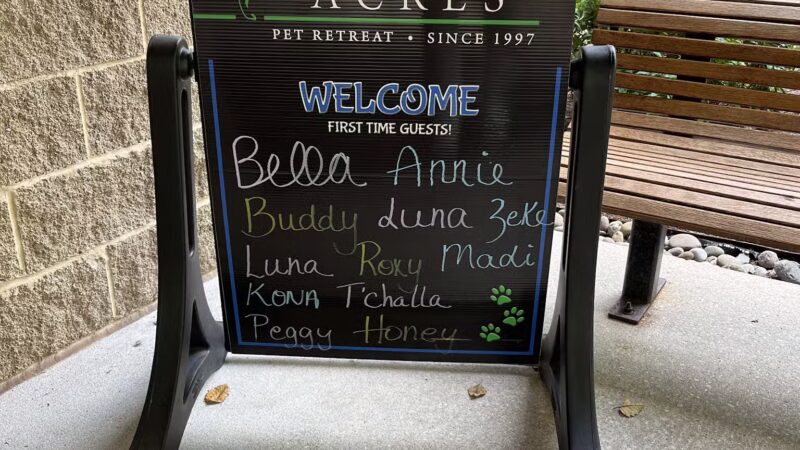 ACRES
PET RETREAT • SINCE 1997
WELCOME
FIRST TIME GUESTS!
Bella Annie
Buddy Luna Zeke
Luna Roxy Madi
KONA T'challa
Peggy Honey